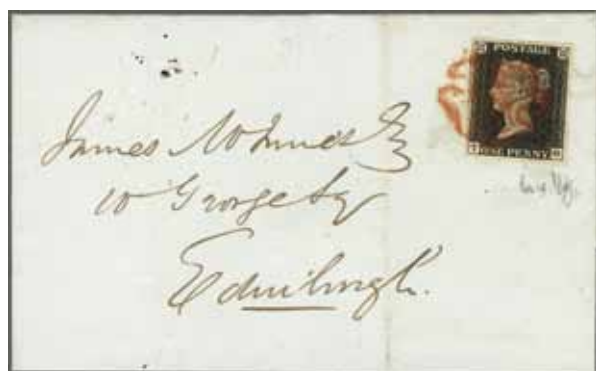 POSTAGE
ONE PENNY
James McInnes Esq
10 George Sq
Edinburgh.